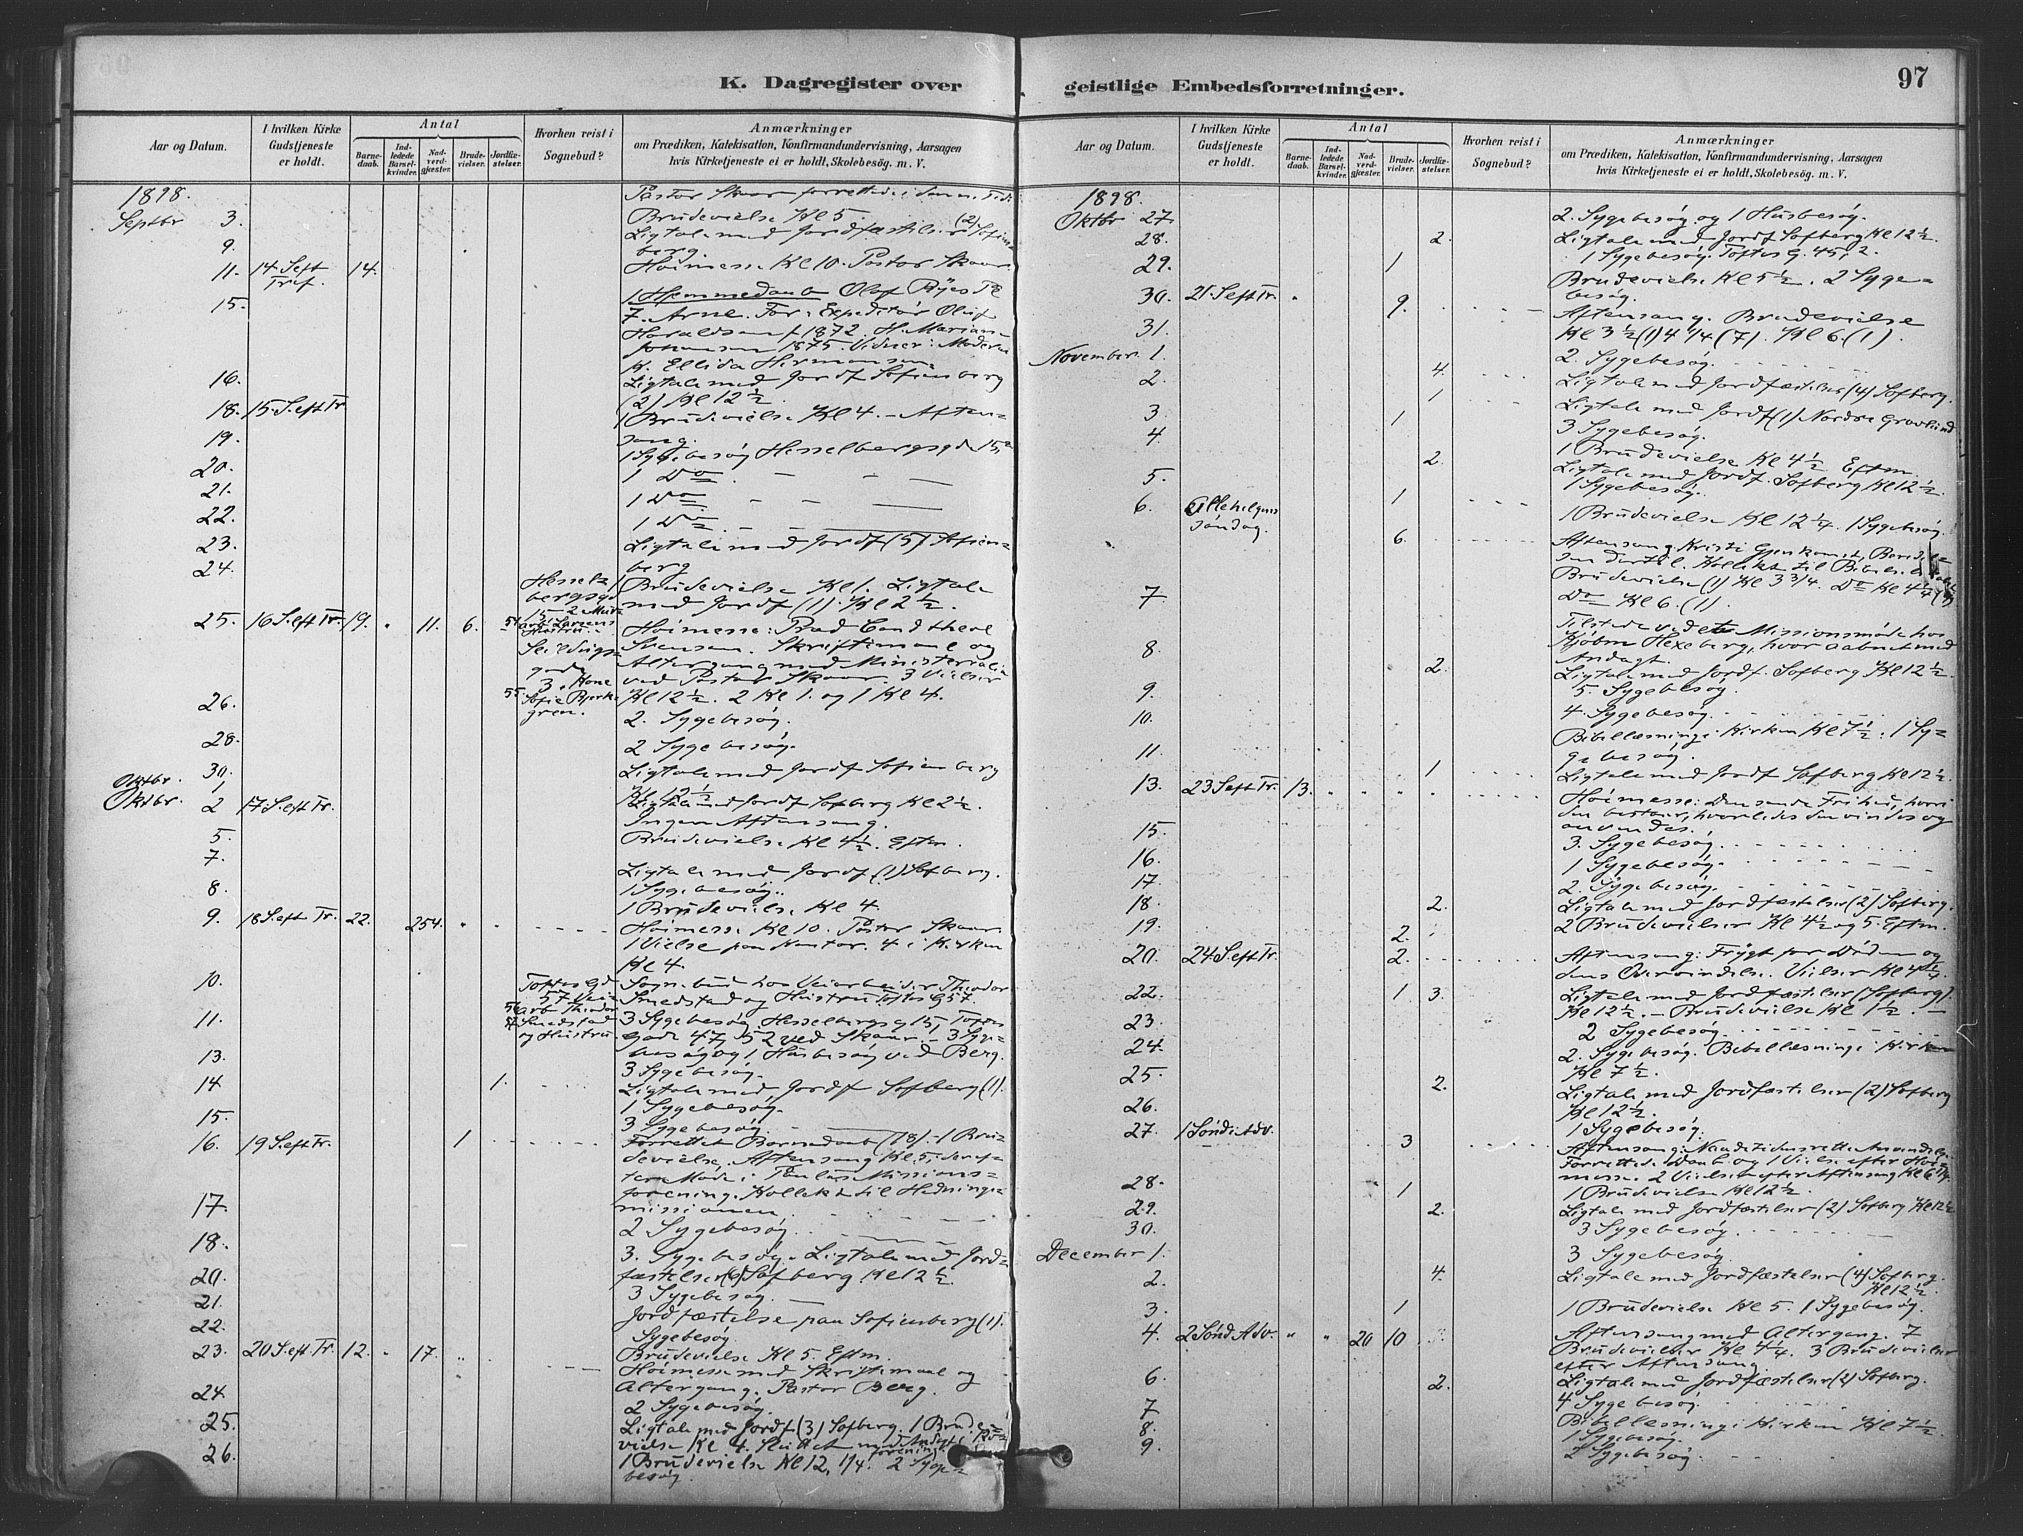 K. Dagregister over
geistlige Embedsforretninger.
97
Aar og Datum.
I hvilken Kirke
Gudstjeneste
er holdt.
Antal
Barne-
daab.
Ind-
ledede
Barsel-
kvinder.
Nad-
verd-
gjæster.
Brude-
vielser.
Jordfæ-
stelser.
Hvorhen reist i
Sognebud?
Anmærkninger
om Prædiken, Katekisation, Konfirmandundervisning, Aarsagen
hvis Kirketjeneste ei er holdt, Skolebesøg. m. V.
1898.
Septbr 3.
Brudevielse Kl 5.
9.
Ligtale med Jordfæstelser (2) Sofien-
berg.
11. 14. S. eft Tref. 14.
Høimesse Kl 10. Pastor Skaar.
15.
1 Hjemmedaab Olaf Ryes Pl
7. Arne. For: Expeditør Oluf
Haraldsen f 1872. H. Marian
Johansen 1875. Vidner: Moderen
K. Ellida Hermansen
16.
Ligtale med Jordf Sofienberg
(2) Kl 12 ½.
18. 15 S. eft Tr
1 Brudevielse Kl 4. – Aften-
sang.
19.
1 Sygebesøg Hesselbergsgd 15,2
20.
1 Do
21.
1 Do
22.
1 Do
23.
Ligtale med Jordf (5) Sofien-
berg
24.
Brudevielse Kl 1. Ligtale
med Jordf (1) Kl 2 ½.
Hessel-
bergsgd
15-2 Mur
arb Larsens
Hustru.
25. 16 S. eft Tr. 19. " 11. 6. 54
Høimesse: Prad Cand theol
Svensen. Skriftemaal og
Altergang med Ministeriali
ved Pastor Skaar. 3 Vielser
Kl 12 ½. 2 Kl 1. og 1 Kl 4.
3. Kone
55 Sofie Bjerke
gren.
26.
2. Sygebesøg.
28.
2 Sygebesøg.
30.
Ligtale med Jordf Sofienberg
Kl 12 ½
Oktbr. 1
Ligtale med Jordf Sofberg Kl 2 ½.
Oktbr. 2 17 S. eft Tr.
Ingen Aftensang.
5.
Brudevielse Kl 4 ½. Eftm.
7.
Ligtale med Jordf (1) Sofberg.
1 Sygebesøg.
8.
1 Brudevielse Kl 4.
9. 18 S. eft Tr. 22. 254. "
Høimesse Kl 10. Pastor Skaar.
1 Vielse paa Kontor. 4 i Kirken
Kl 4.
10.
Toftes Gd
57 Vei-
56 arb Theodor
57 Smedstad
og Hustru
Sognebud hos Veiarbeider Theodor
Smedstad og Hustru Toftes G 57.
11.
3 Sygebesøg Hesselbergsg 15, Toftes
Gade 47, 52 ved Skaar. – 3 Syge-
besøg og 1 Husbesøg ved Berg.
13.
3 Sygebesøg.
14 1.
Ligtale med Jordf Sofberg (1).
1 Sygebesøg.
15.
3 Sygebesøg.
16. 19 S. eft Tr. 1
Forrettet Barnedaab (18). – 1 Bru-
devielse, Aftensang Kl 5, deref-
ter Møde i Paulus Missions-
forening. Kollekt til Hedninge-
missionen.
17.
2 Sygebesøg.
18.
3. Sygebesøg. Ligtale med Jord-
fæstelser Sofberg Kl 12 ½.
20.
3 Sygebesøg.
21.
Jordfæstelse paa Sofienberg (1).
22.
Sygebesøg.
Brudevielse Kl 5. Eftm.
23. 20 S. eft Tr. 12. " 17. "
Høimesse med Skriftemaal og
Altergang. Pastor Berg.
24.
2 Sygebesøg.
25.
Ligtale med Jordf (3) Sofberg. 1 Brude-
vielse Kl 4. Sluttet med Andagt i
26.
1 Brudevielse Kl 12, 1/4. 2 Syge-
besøg.
Aar og Datum.
I hvilken Kirke
Gudstjeneste
er holdt.
Antal
Barne-
daab.
Ind-
ledede
Barsel-
kvinder.
Nad-
verd-
gjæster.
Brude-
vielser.
Jordfæ-
stelser.
Hvorhen reist i
Sognebud?
Anmærkninger
om Prædiken, Katekisation, Konfirmandundervisning, Aarsagen
hvis Kirketjeneste ei er holdt, Skolebesøg. m. V.
1898.
Oktbr 27.
2. Sygebesøg og 1 Husbesøg.
28. 2.
Ligtale med Jordf Sofberg Kl 12 ½.
1 Sygebesøg. Toftes G. 45, 2.
29. 1
Brudevielse Kl 5 ½. 2 Syge-
besøg.
30. 21 S. eft Tr. " 9.
Aftensang. Brudevielse
Kl 3 ½ (1) 4 1/4 (7). Kl 6. (1).
31.
2. Sygebesøg.
November 1. 4.
Ligtale med Jordfæstelser (4) Sofberg.
2. 1
Ligtale med Jordf (1) Nordre Gravlund
3. 1
3 Sygebesøg.
4.
1 Brudevielse Kl 4 ½ Eftm.
2.
Ligtale med Jordf. Sofberg Kl 12 ½.
5.
1 Sygebesøg.
6. Allehelgens
søndag.
1
1 Brudevielse Kl 12 1/4. 1 Sygebesøg.
6.
Aftensang Kristi Gjenkomst,
Brudevielse (1) Kl 3 3/4. Do Kl 4 1/4
Do Kl 6. (1).
7.
Tilstede ved et Missionsmøde hos
Kjøbm Hexeberg, hvor aabnet med
Andagt.
8. 2.
Ligtale med Jordf. Sofberg Kl 12 ½.
5. Sygebesøg.
9.
4. Sygebesøg.
10.
Bibellæsning i Kirken Kl 7 ½. 1 Sy-
gebesøg.
11. 1
Ligtale med Jordf Sofberg Kl 12 ½.
13. 23 S. eft Tr. 13. " " " "
Høimesse: Den sande Frihed, hvori
den bestaar, hvorledes den vindes og
anvendes.
15.
3. Sygebesøg.
16.
1 Sygebesøg.
17.
2. Sygebesøg.
18. 2.
Ligtale med Jordfæstelser (2) Sofberg.
19. 2.
2 Brudevielser Kl 4 ½ og 5. Eftm.
20. 24 S. eft Tr. 2.
Aftensang: Frygt for Døden og
dens Overvindelse. Vielser Kl
22. 1 3.
Ligtale med Jordfæstelser (Sofberg).
Kl 12 ½. – Brudevielse Kl 1 ½. –
23.
2 Sygebesøg.
24.
2. Sygebesøg. Bibellæsning i Kirken
Kl 7 ½.
25. 2.
Ligtale med Jordfæstelser (2) Sofberg
Kl 12 ½.
26.
1 Sygebesøg.
27. 1 Sønd i Adv. 3
Aftensang: Naadetidens rette Anvendelse
Forrettede Daab og 1 Vielse efter Høi-
messe. 2 Vielser efter Aftensang Kl 6
28. 1
1 Brudevielse Kl 12 ½.
29. 2.
Ligtale med Jordfæstelser (2) Sofberg Kl 12 ½
30.
3 Sygebesøg
December 1.
3 Sygebesøg
2. 4.
Ligtale med Jordfæstelser (4) Sofberg.
Kl 12 ½.
3. 1
1 Brudevielse Kl 5. 1 Sygebesøg.
4. 2 Sønd Adv. " " 20 10
Aftensang med Altergang. 7
Brudevielser Kl 4 1/4. 3 Brudevielser
efter Aftensang.
6. 2.
Ligtale med Jordfæstelser (2) Sofberg.
7
4 Sygebesøg
8.
Bibellæsning i Kirken Kl 7 ½.
1 Sygebesøg.
9.
2 Sygebesøg